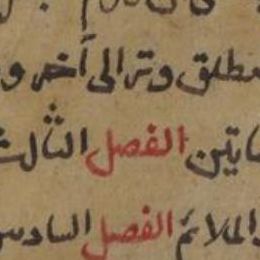 مطلق وتر الى آخر و
ـايتين الفصل الثالث
الملائم الفصل السادس